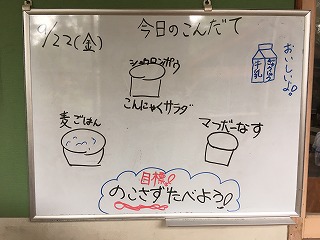 9/22(金)
今日のこんだて
おいしいよ♪
牛乳
こんにゃくサラダ
麦ごはん
マーボーなす
目標
のこさずたべよう